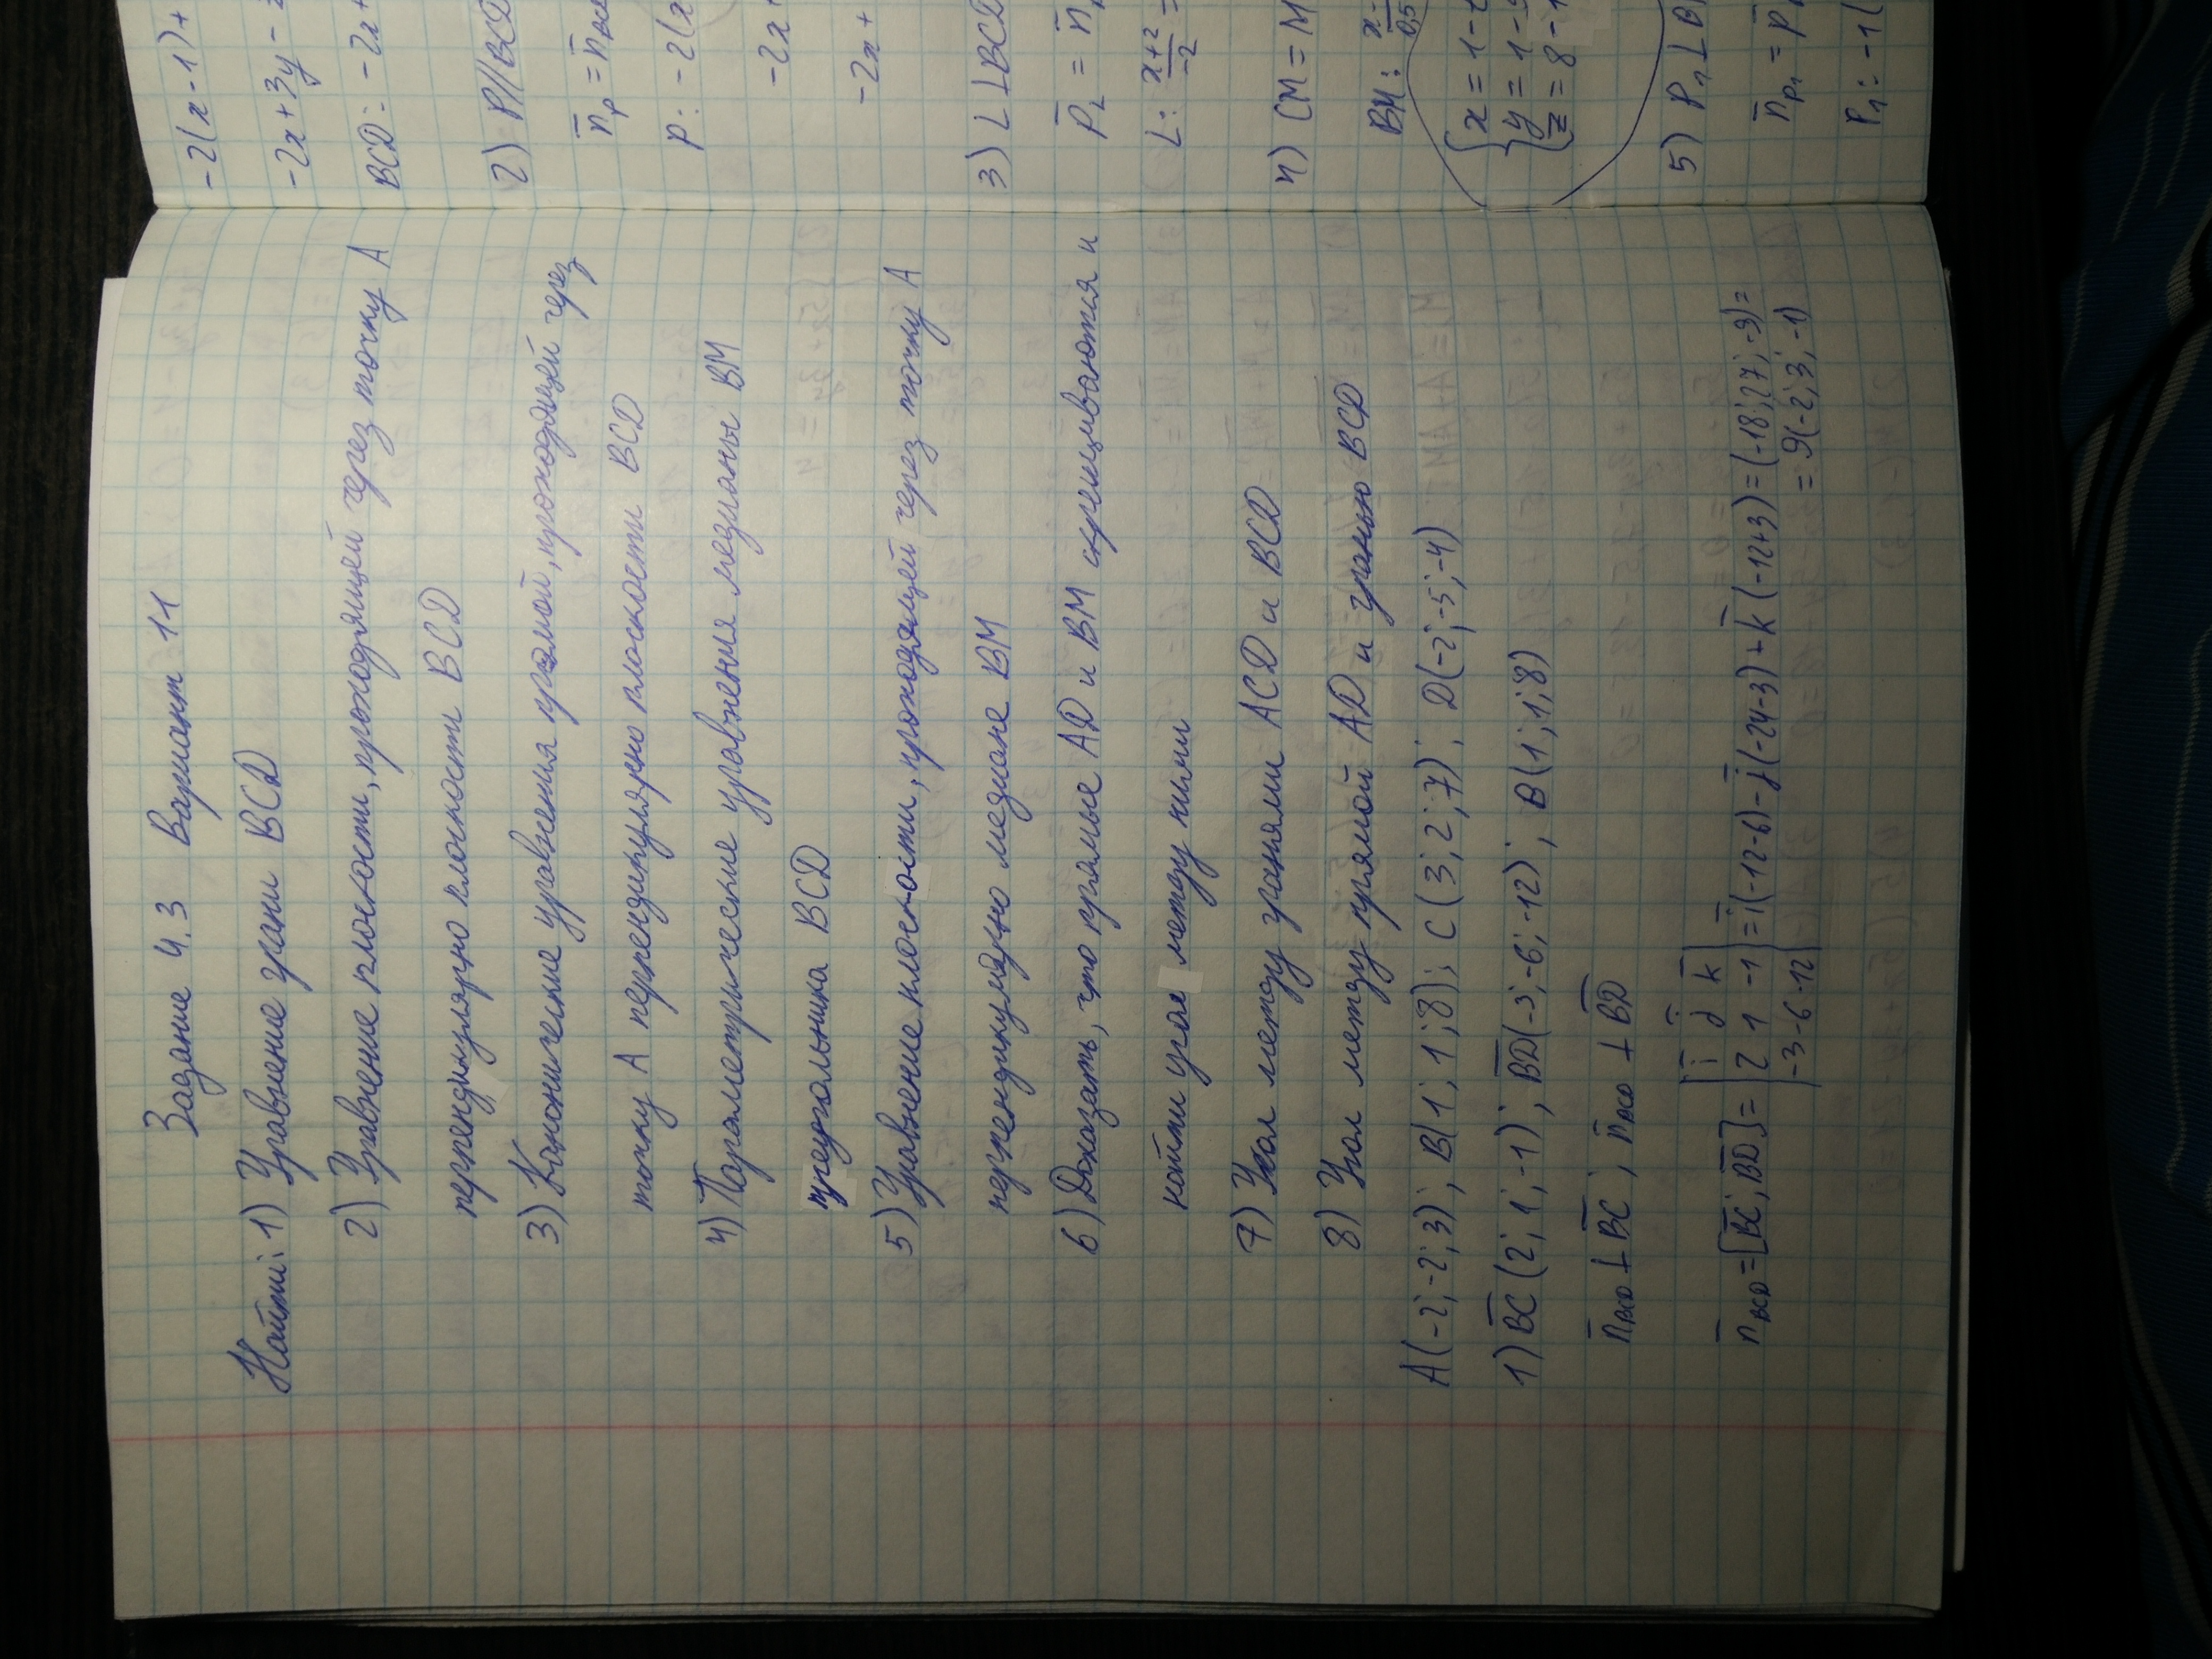 Задание 4.3 Вариант 11
Найти: 1) Уравнение грани BCD
2) Уравнение плоскости, проходящей через точку А
перпендикулярно плоскости BCD
3) Канонические уравнения прямой, проходящей через
точку А перпендикулярно плоскости BCD
4) Параметрические уравнения медианы BM
треугольника BCD
5) Уравнение плоскости, проходящей через точку А
перпендикулярно медиане BM
6) Доказать, что прямые AD и BM скрещиваются и
найти угол между ними
7) Угол между гранями ACD и BCD
8) Угол между прямой AD и гранью BCD
A(-2; -2; 3); B(1; 1; 8); C(3; 2; 7); D(-2; -5; -4)
1) B̅C̅(2; 1; -1); B̅D̅(-3; -6; -12); B(1; 1; 8)
n̅BCD ⊥ B̅C̅; n̅BCD ⊥ B̅D̅
n̅BCD = [B̅C̅; B̅D̅] = |i̅ j̅ k̅|
|2 1 -1| = i̅(-12-6) - j̅(-24-3) + k̅(-12+3) = (-18; 27; -9) =
|-3 -6 -12| = 9(-2; 3; -1)
-2(x-1)+
-2x+3y-
BCD: -2x+
2) P||BCD
n̅p = n̅BCD
P: -2(x
-2x+
-2x+
3) L⊥BCD
P̅L = n̅
L: x+2/-2 =
4) CM = M
BM: x-/0,5
{x = 1-
y = 1-
z = 8-
5) P1 ⊥ B
n̅P1 = P
P1: -1(